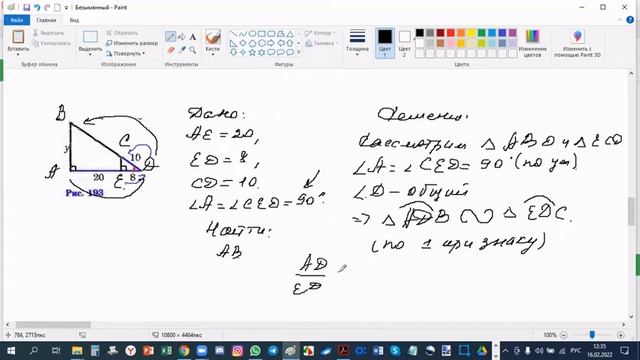 Безымянный - Paint
Файл
Главная
Вид
Вставить
Вырезать
Копировать
Выделить
Обрезать
Изменить размер
Повернуть
Кисти
Контур
Заливка
Толщина
Цвет 1
Цвет 2
Изменение цветов
Изменить с помощью Paint 3D
Буфер обмена
Изображение
Инструменты
Фигуры
Цвета
B
y
A
C
10
20
E
8
Рис. 193
Дано:
AE = 20,
ED = 8,
CD = 10.
∠A = ∠CED = 90°.
Найти:
AB
AD
ED
Решение:
Рассмотрим △ ABD и △ ECD
∠A = ∠CED = 90° (по ул)
∠D - общий
=> △ ADB ∽ △ EDC.
(по 1 признаку)
784, 2713пкс
10800 × 4464пкс
100%
РУС
12:35
16.02.2022